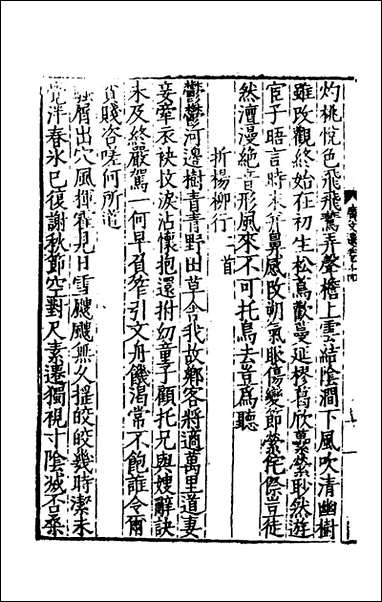 灼桃悅色飛飛鷰弄聲檐上雲結陰澗下風吹清幽樹
雖改觀終始在初生松蔦歡曼延樛葛欣虆縈眇然遊
宦子晤言時未并鼻感改朔氣眼傷變節縈侘傺豈徒
然澶漫絕音形風來不可托鳥去豈爲聽
折楊柳行二首
鬱鬱河邊樹青青野田草舍我故鄉客將適萬里道妻
妾牽衣袂抆淚沾懷抱還拊幼童子顧托兄與嫂辭訣
未及終嚴駕一何早負笮引文舟饑渴常不飽誰令爾
貧賤咨嗟何所道
騷屑出穴風揮霍見日雪颼颼無久搖皎皎幾時潔未
覺泮春氷已復謝秋節空對尺素遷獨視寸陰滅否桑